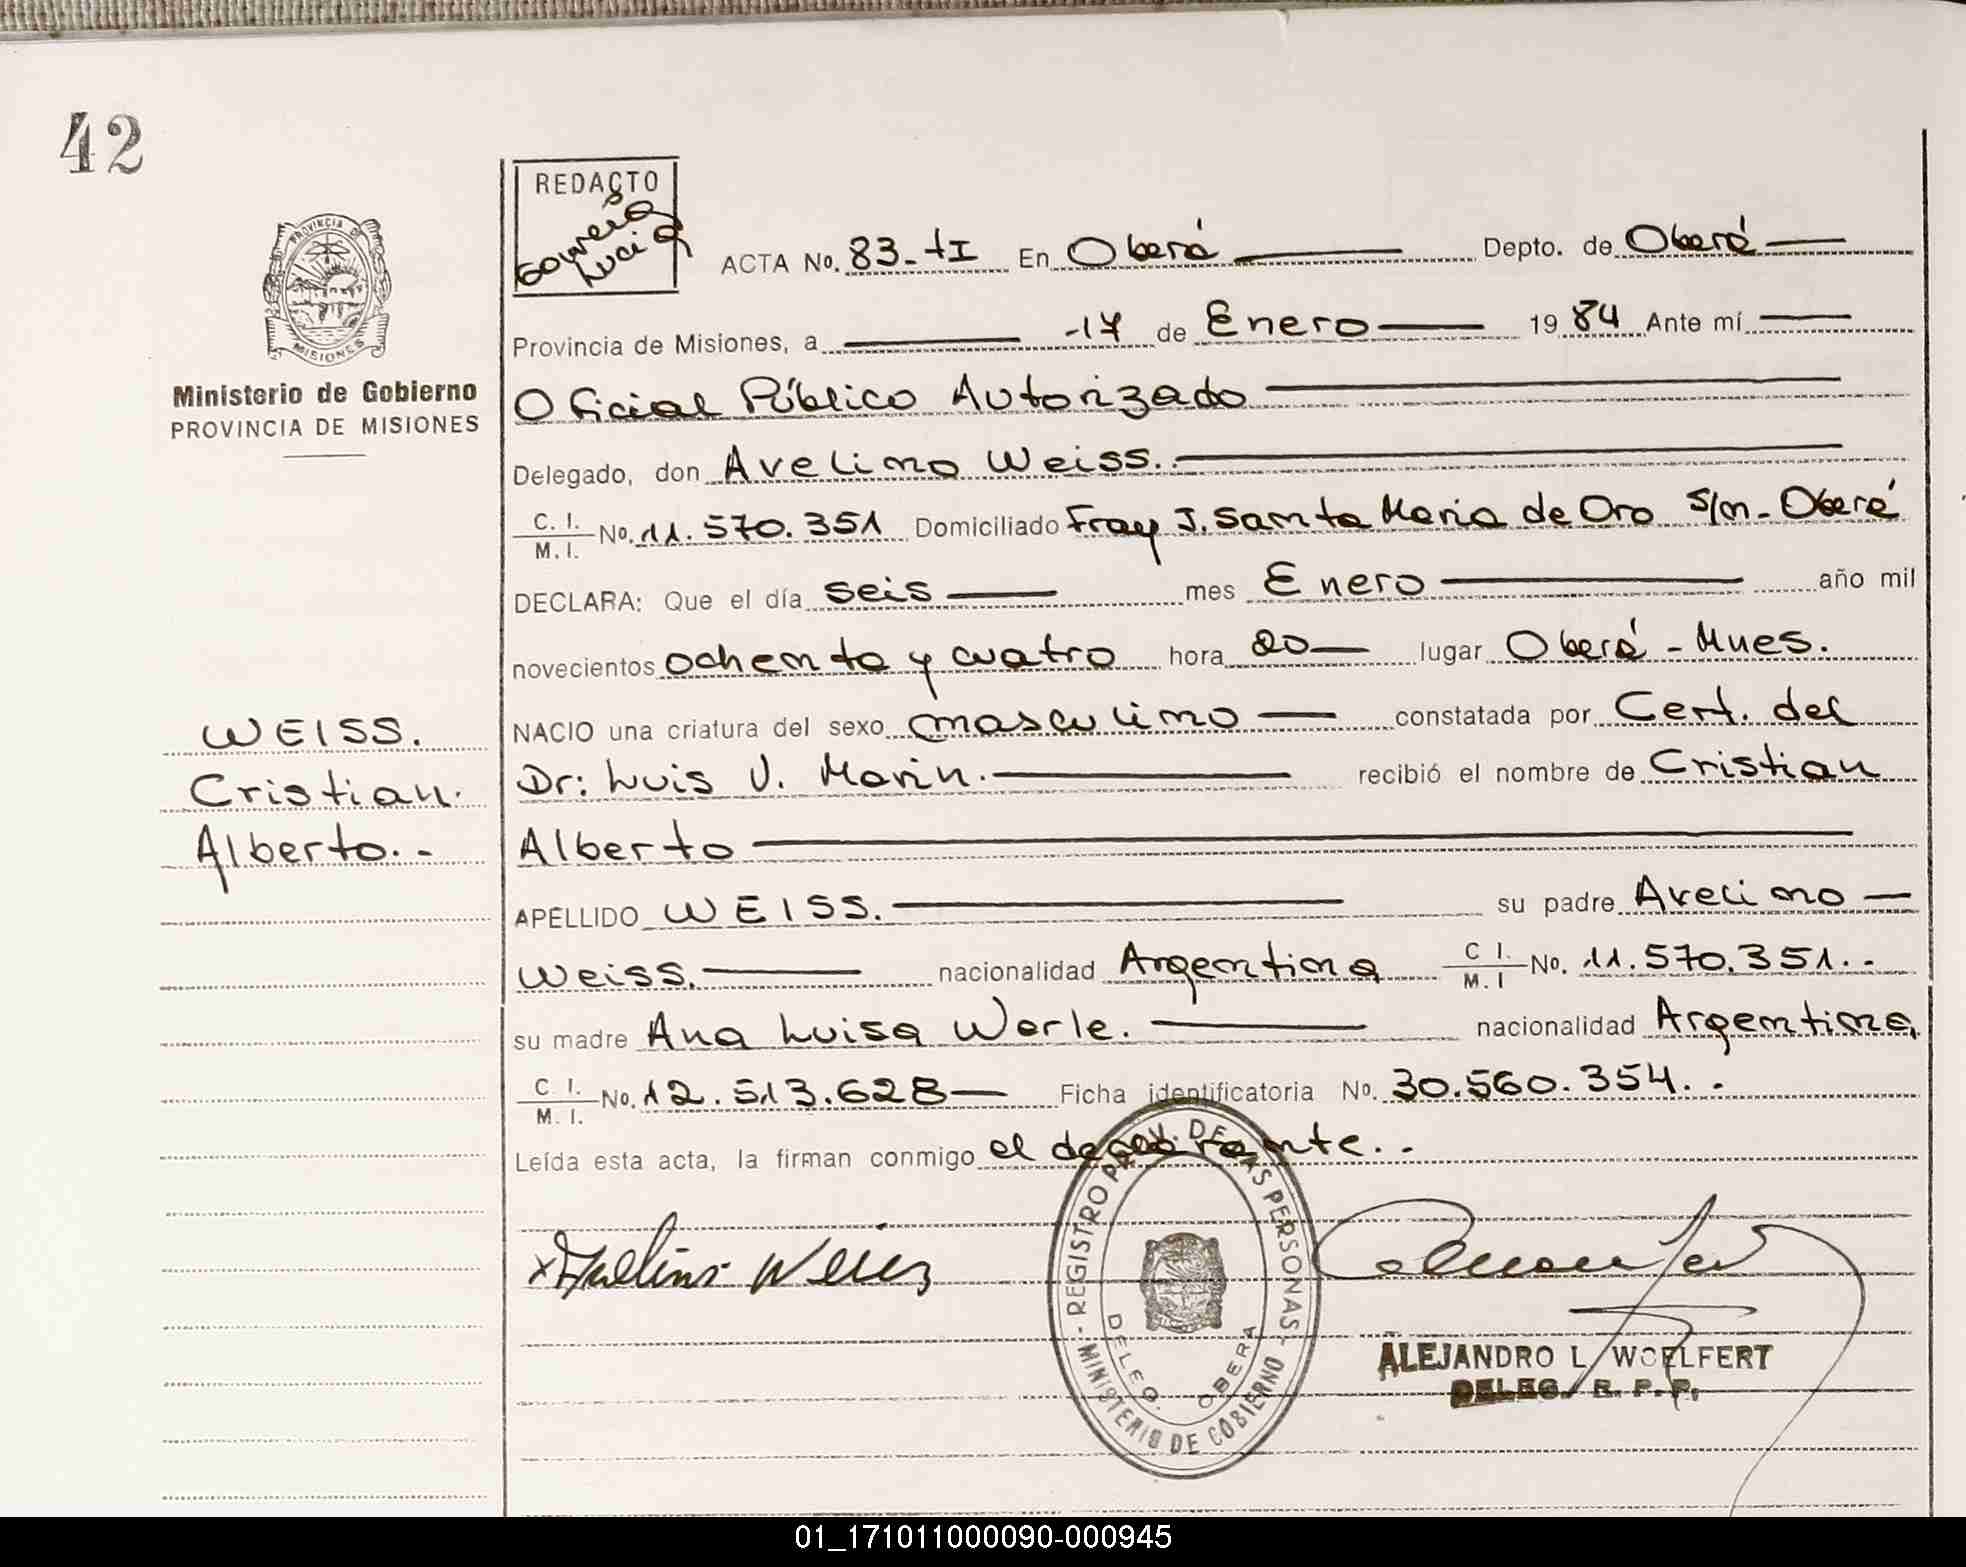 42
REDACTO
Lucia
PROVINCIA DE
MISIONES
ACTA No. 83-tI En Oberá Depto. de Oberá
Provincia de Misiones, a -17 de Enero 1984 Ante mí
Ministerio de Gobierno
PROVINCIA DE MISIONES
Oficial Público Autorizado
Delegado, don Avelino Weiss.
C. I. / M. I. No. 11.570.351 Domiciliado Fray J. Santa Maria de Oro S/n-Oberá
DECLARA: Que el día seis mes Enero año mil
novecientos ochenta y cuatro hora 20 lugar Oberá - Mnes.
NACIO una criatura del sexo masculino constatada por Cert. del
Dr: Luis V. Marin. recibió el nombre de Cristian
Alberto
WEISS.
Cristian.
Alberto.-
APELLIDO WEISS. su padre Avelino
Weiss. nacionalidad Argentina C I. / M. I No. 11.570.351..
su madre Ana Luisa Werle. nacionalidad Argentina,
C I. / M. I. No. 12.513.628 Ficha identificatoria No. 30.560.354..
Leída esta acta, la firman conmigo el declarante..
x Avelino Weiss
- REGISTRO PROV. DE LAS PERSONAS -
MINISTERIO DE GOBIERNO
DELEG. OBERA
ALEJANDRO L. WOELFERT
DELEG. R. P. P.
01_171011000090-000945